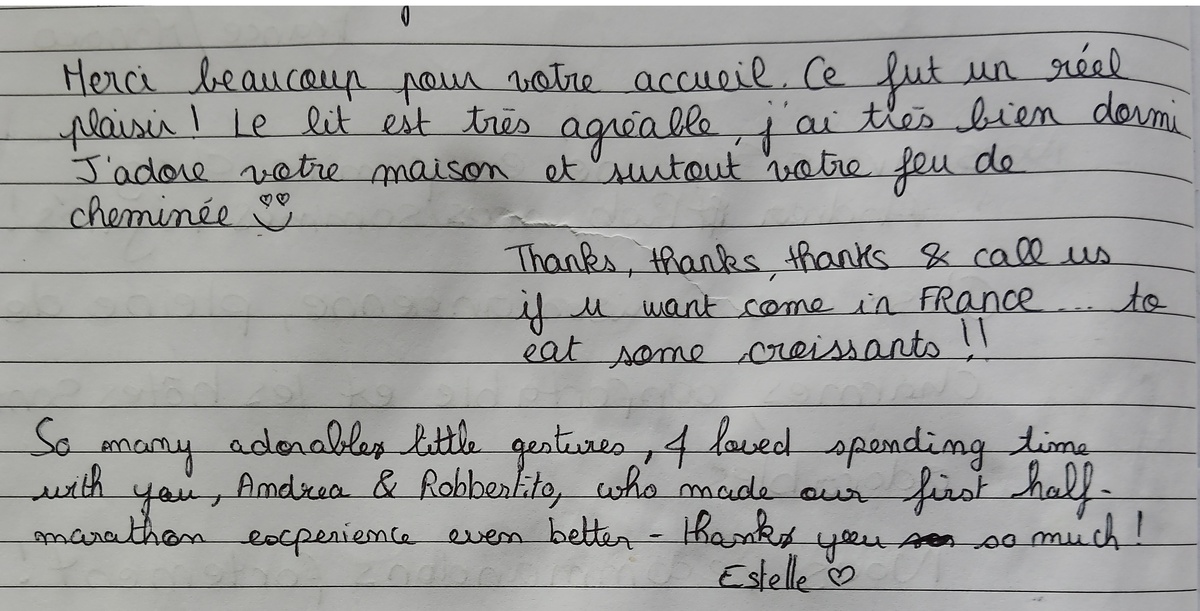 Merci beaucoup pour votre accueil. Ce fut un réel
plaisir! Le lit est très agréable, j'ai très bien dormi
J'adore votre maison et surtout votre feu de
cheminée
Thanks, thanks, thanks & call us
if u want come in FRANCE ... to
eat some croissants !!
So many adorables little gestures, I loved spending time
with you, Andrea & Robbertito, who made our first half-
marathon experience even better - thanks you so much!
Estelle ♡